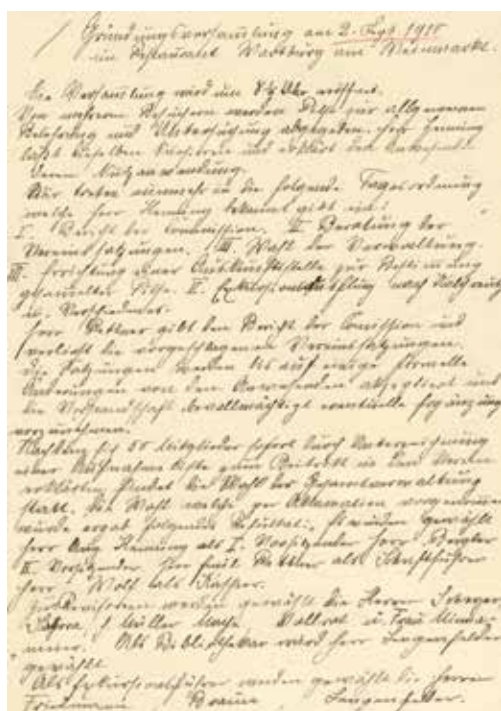 Gründungsversammlung am 2. Sept. 1915
im Restaurant Wartburg am Weinmarkt.
Die Versammlung wird um 8½ Uhr eröffnet.
Von mehreren Besuchern werden Pilze zur allgemeinen
Belehrung und Untersuchung abgegeben. Herr Henning
läßt dieselben kursieren und erklärt den Anwesenden
deren Nutzanwendung.
Wir treten nunmehr in die folgende Tagesordnung
welche Herr Henning bekannt gibt ein:
I. Bericht der Commission. II Beratung der
Vereinssatzungen. III. Wahl der Verwaltung.
Errichtung einer Auskunftsstelle zur Bestimmung
gesammelter Pilze. V. nach
u. Verschiedenes.
Herr gibt den Bericht der Comission und
verliest die vorgeschlagenen Vereinssatzungen.
Die Satzungen werden bis auf einige formelle
Änderungen von den Anwesenden und
die Vorstandschaft bevollmächtigt eventuelle Ergänzung
vorzunehmen.
Nachdem sich 50 Mitglieder sofort durch Unterzeichnung
einer Aufnahme Liste zum Beitritt in den Verein
erklärten findet die Wahl der Gesamtverwaltung
statt. Die Wahl welche per Aklamation vorgenommen
wurde ergab folgendes Resultat: Es wurden gewählt
Herr Aug Henning als I. Vorsitzender Herr
II Vorsitzender. Herr Emil als Schriftführer
Herr Wolf als Kassier.
werden gewählt die Herren
Müller u. Frau
Als Bibliothekar wird Herr Lengenfelder
gewählt.
Als Exkursionsführer werden gewählt die Herren
Braun Lengenfelder.